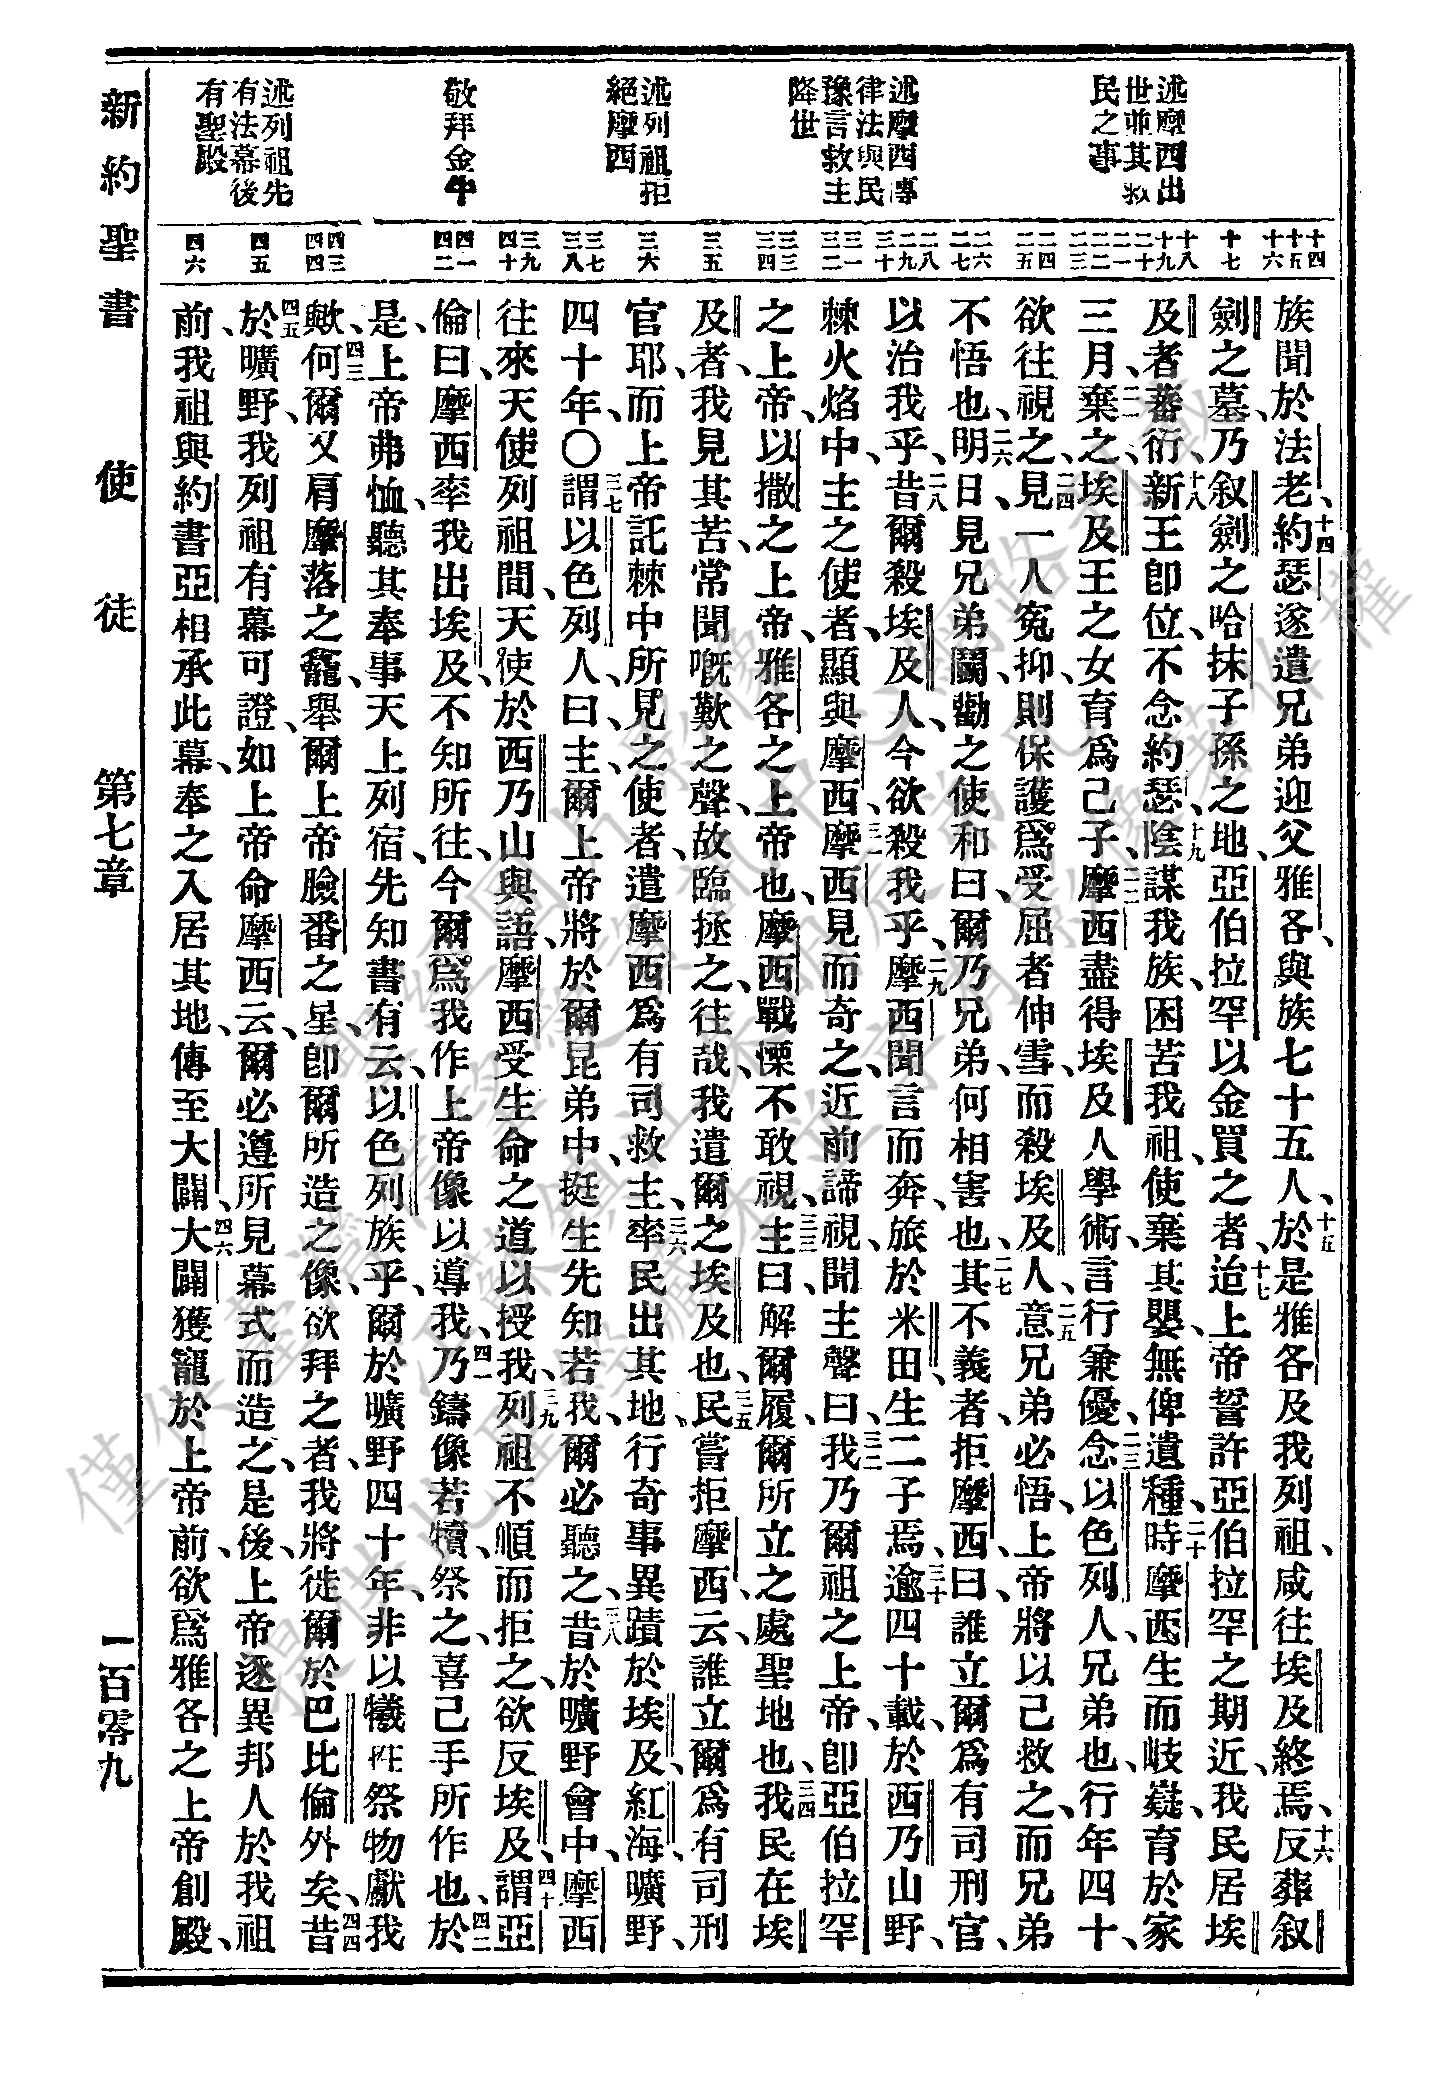 述摩西出
世並其救
民之事
述摩西傳
律法與民
豫言救主
降世
述列祖拒
絕摩西
敬拜金牛
述列祖先
有法幕後
有聖殿
十四
十五
十六
十七
十八
十九
二十
二一
二二
二三
二四
二五
二六
二七
二八
二九
三十
三一
三二
三三
三四
三五
三六
三七
三八
三九
四十
四一
四二
四三
四四
四五
四六
族聞於法老、十四約瑟遂遣兄弟迎父雅各、與族七十五人、十五於是雅各及我列祖、咸往埃及終焉、十六反葬叙
劍之墓、乃叙劍之哈抹子孫之地、亞伯拉罕以金買之者、十七迨上帝誓許亞伯拉罕之期近、我民居埃
及者蕃衍、十八新王卽位、不念約瑟、十九陰謀我族、困苦我祖、使棄其嬰、無俾遺種、二十時摩西生而岐嶷、育於家
三月、二一棄之、埃及王之女育爲己子、二二摩西盡得埃及人學術、言行兼優、二三念以色列人、兄弟也、行年四十、
欲往視之、二四見一人寃抑、則保護爲受屈者伸雪、而殺埃及人、二五意兄弟必悟、上帝將以己救之、而兄弟
不悟也、二六明日、見兄弟鬭、勸之使和曰、爾乃兄弟、何相害也、二七其不義者、拒摩西曰、誰立爾爲有司刑官、
以治我乎、二八昔爾殺埃及人、今欲殺我乎、二九摩西聞言而奔、旅於米田、生二子焉、三十逾四十載、於西乃山野、
棘火焰中、主之使者、顯與摩西、三一摩西見而奇之、近前諦視、聞主聲曰、三二我乃爾祖之上帝、卽亞伯拉罕
之上帝、以撒之上帝、雅各之上帝也、摩西戰慄不敢視、三三主曰、解爾履、爾所立之處聖地也、三四我民在埃
及者、我見其苦、常聞嘅歎之聲、故臨拯之、往哉、我遣爾之埃及也、三五民嘗拒摩西云、誰立爾爲有司刑
官耶、而上帝託棘中所見之使者、遣摩西爲有司救主、三六率民出其地、行奇事異蹟於埃及、紅海、曠野、
四十年、〇三七謂以色列人曰、主、爾上帝將於爾昆弟中、挺生先知若我、爾必聽之、三八昔於曠野會中、摩西
往來天使列祖間、天使於西乃山與語、摩西受生命之道以授我、三九列祖不順而拒之、欲反埃及、四十謂亞
倫曰、摩西率我出埃及、不知所往、今爾爲我作上帝像以導我、四一乃鑄像若犢、祭之、喜己手所作也、四二於
是上帝弗恤、聽其奉事天上列宿、先知書有云、以色列族乎、爾於曠野四十年、非以犧牲祭物獻我
歟、四三何爾又肩摩落之龕、舉爾上帝臉番之星、卽爾所造之像、欲拜之者、我將徙爾於巴比倫外矣、四四昔
四五於曠野、我列祖有幕可證、如上帝命摩西云、爾必遵所見幕式而造之、是後、上帝逐異邦人於我祖
前、我祖與約書亞相承此幕、奉之入居其地、傳至大闢、四六大闢獲寵於上帝前、欲爲雅各之上帝創殿、
新約聖書 使徒 第七章 一百零九